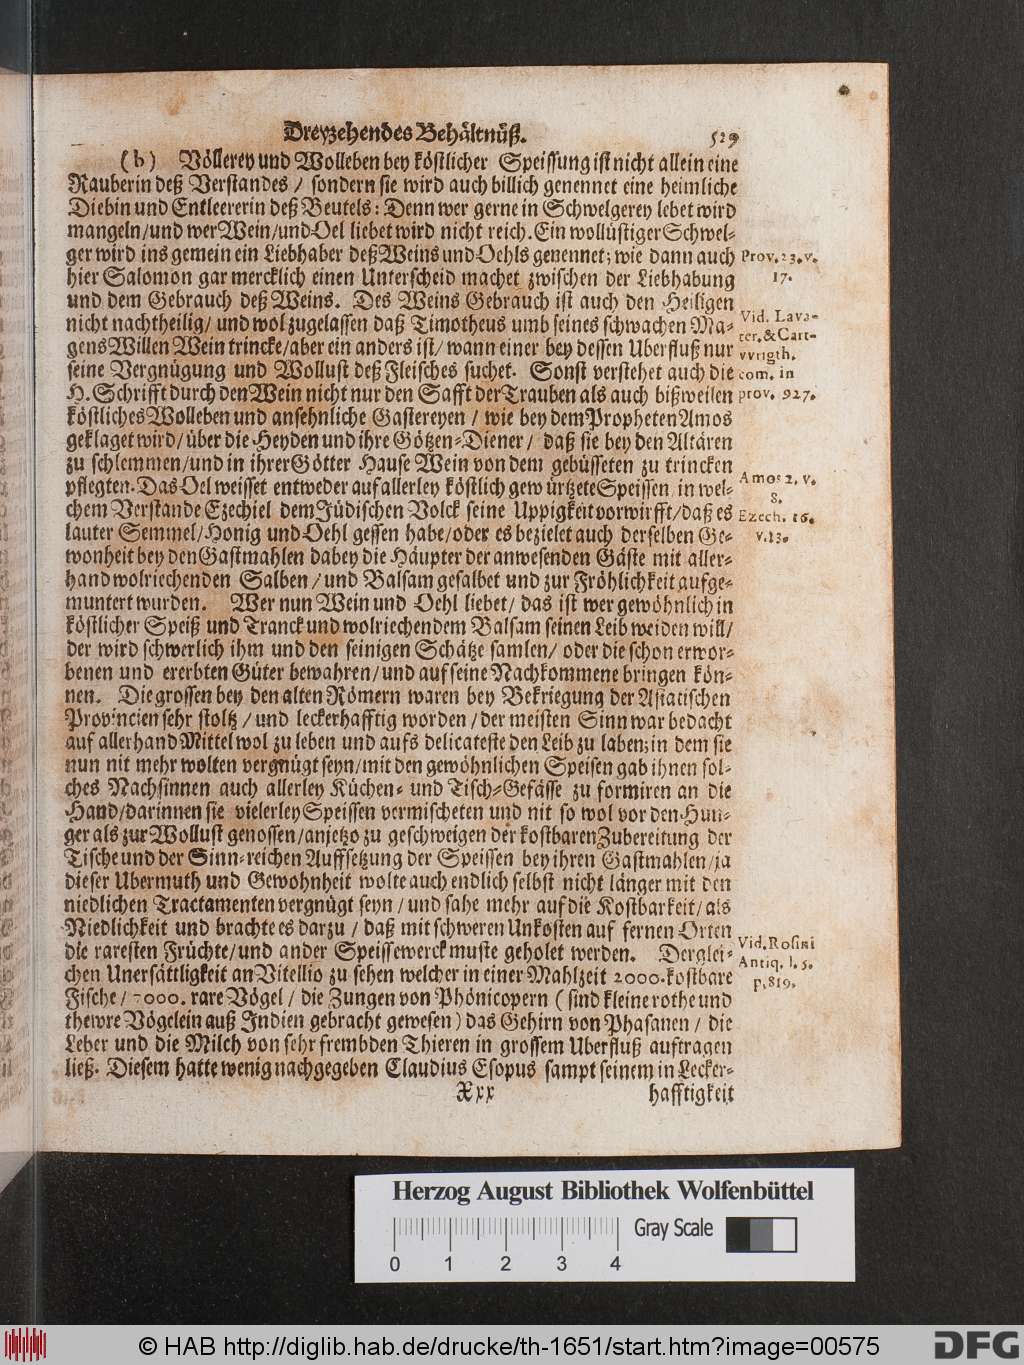 Dreyzehendes Behältnüß. 529
(b) Völlerey und Wolleben bey köstlicher Speissung ist nicht allein eine
Rauberin deß Verstandes / sondern sie wird auch billich genennet eine heimliche
Diebin und Entleererin deß Beutels: Denn wer gerne in Schwelgerey lebet wird
mangeln/und wer Wein/und Oel liebet wird nicht reich. Ein wollüstiger Schwel-
ger wird ins gemein ein Liebhaber deß Weins und Oehls genennet; wie dann auch
hier Salomon gar mercklich einen Unterscheid machet zwischen der Liebhabung
und dem Gebrauch deß Weins. Des Weins Gebrauch ist auch den Heiligen
nicht nachtheilig/ und wol zugelassen daß Timotheus umb seines schwachen Ma-
gens Willen Wein trincke/aber ein anders ist/ wann einer bey dessen Uberfluß nur
seine Vergnügung und Wollust deß Fleisches suchet. Sonst verstehet auch die
H. Schrifft durch den Wein nicht nur den Safft der Trauben als auch bißweilen
köstliches Wolleben und ansehnliche Gastereyen / wie bey dem Propheten Amos
geklaget wird/ über die Heyden und ihre Götzen-Diener / daß sie bey den Altären
zu schlemmen/und in ihrer Götter Hause Wein von dem gebüsseten zu trincken
pflegten. Das Oel weisset entweder auf allerley köstlich gewürtzete Speissen, in wel-
chem Verstande Ezechiel dem Jüdischen Volck seine Uppigkeit vorwirfft/daß es
lauter Semmel/Honig und Oehl gessen habe/oder es bezielet auch derselben Ge-
wonheit bey den Gastmahlen dabey die Häupter der anwesenden Gäste mit aller-
hand wolriechenden Salben / und Balsam gesalbet und zur Fröhlichkeit aufge-
muntert wurden. Wer nun Wein und Oehl liebet/ das ist wer gewöhnlich in
köstlicher Speiß und Tranck und wolriechendem Balsam seinen Leib weiden will/
der wird schwerlich ihm und den seinigen Schätze samlen/ oder die schon erwor-
benen und ererbten Güter bewahren/und auf seine Nachkommene bringen kön-
nen. Die grossen bey den alten Römern waren bey Bekriegung der Asiatischen
Provincien sehr stoltz / und leckerhafftig worden / der meisten Sinn war bedacht
auf allerhand Mittel wol zu leben und aufs delicateste den Leib zu laben; in dem sie
nun nit mehr wolten vergnügt seyn/mit den gewöhnlichen Speisen gab ihnen sol-
ches Nachsinnen auch allerley Küchen- und Tisch-Gefässe zu formiren an die
Hand/darinnen sie vielerley Speissen vermischeten und nit so wol vor den Hun-
ger als zur Wollust genossen/anjetzo zu geschweigen der kostbaren Zubereitung der
Tische und der Sinn-reichen Auffsetzung der Speissen bey ihren Gastmahlen/ja
dieser Ubermuth und Gewohnheit wolte auch endlich selbst nicht länger mit den
niedlichen Tractamenten vergnügt seyn / und sahe mehr auf die Kostbarkeit/als
Niedlichkeit und brachte es darzu / daß mit schweren Unkosten auf fernen Orten
die raresten Früchte/und ander Speissewerck muste geholet werden. Derglei-
chen Unersättligkeit an Vitellio zu sehen welcher in einer Mahlzeit 2000. kostbare
Fische / 7000. rare Vögel / die Zungen von Phönicopern ( sind kleine rothe und
thewre Vögelein auß Indien gebracht gewesen ) das Gehirn von Phasanen / die
Leber und die Milch von sehr frembden Thieren in grossem Uberfluß auftragen
ließ. Diesem hatte wenig nachgegeben Claudius Esopus sampt seinem in Lecker-
Xxx hafftigkeit
Prov. 23. v.
17.
Vid. Lava-
ter. & Cart-
vvrigth.
com. in
prov. 927.
Amos 2. v.
8.
Ezech. 16.
v. 13.
Vid. Rosini
Antiq. l. 5.
p. 819.
Herzog August Bibliothek Wolfenbüttel
Gray Scale
0 1 2 3 4
© HAB http://diglib.hab.de/drucke/th-1651/start.htm?image=00575
DFG